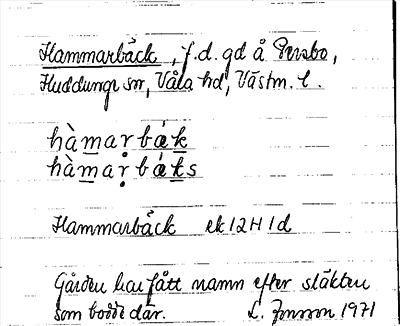 Hammarbäck, f.d. gd å Persbo,
Huddunge sn, Våla hd, Västm. l.
hàmarbák
hàmaṛbáks
Hammarbäck ek 12H1d
Gården har fått namn efter släkten
som bodde där. L. Jonsson 1971